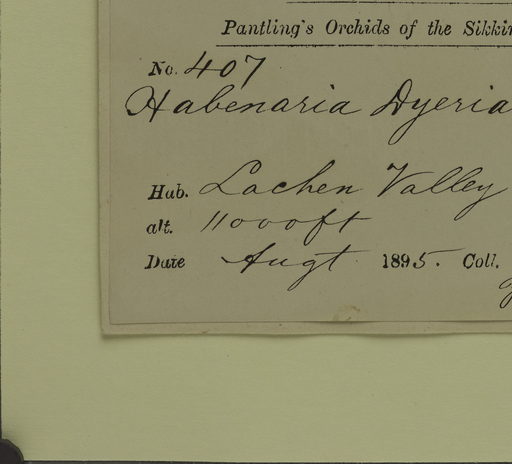 Pantling's Orchids of the Sikki
No. 407
Habenaria Dyeria
Hab. Lachen Valley
alt. 11000ft
Date Augt 1895. Coll.